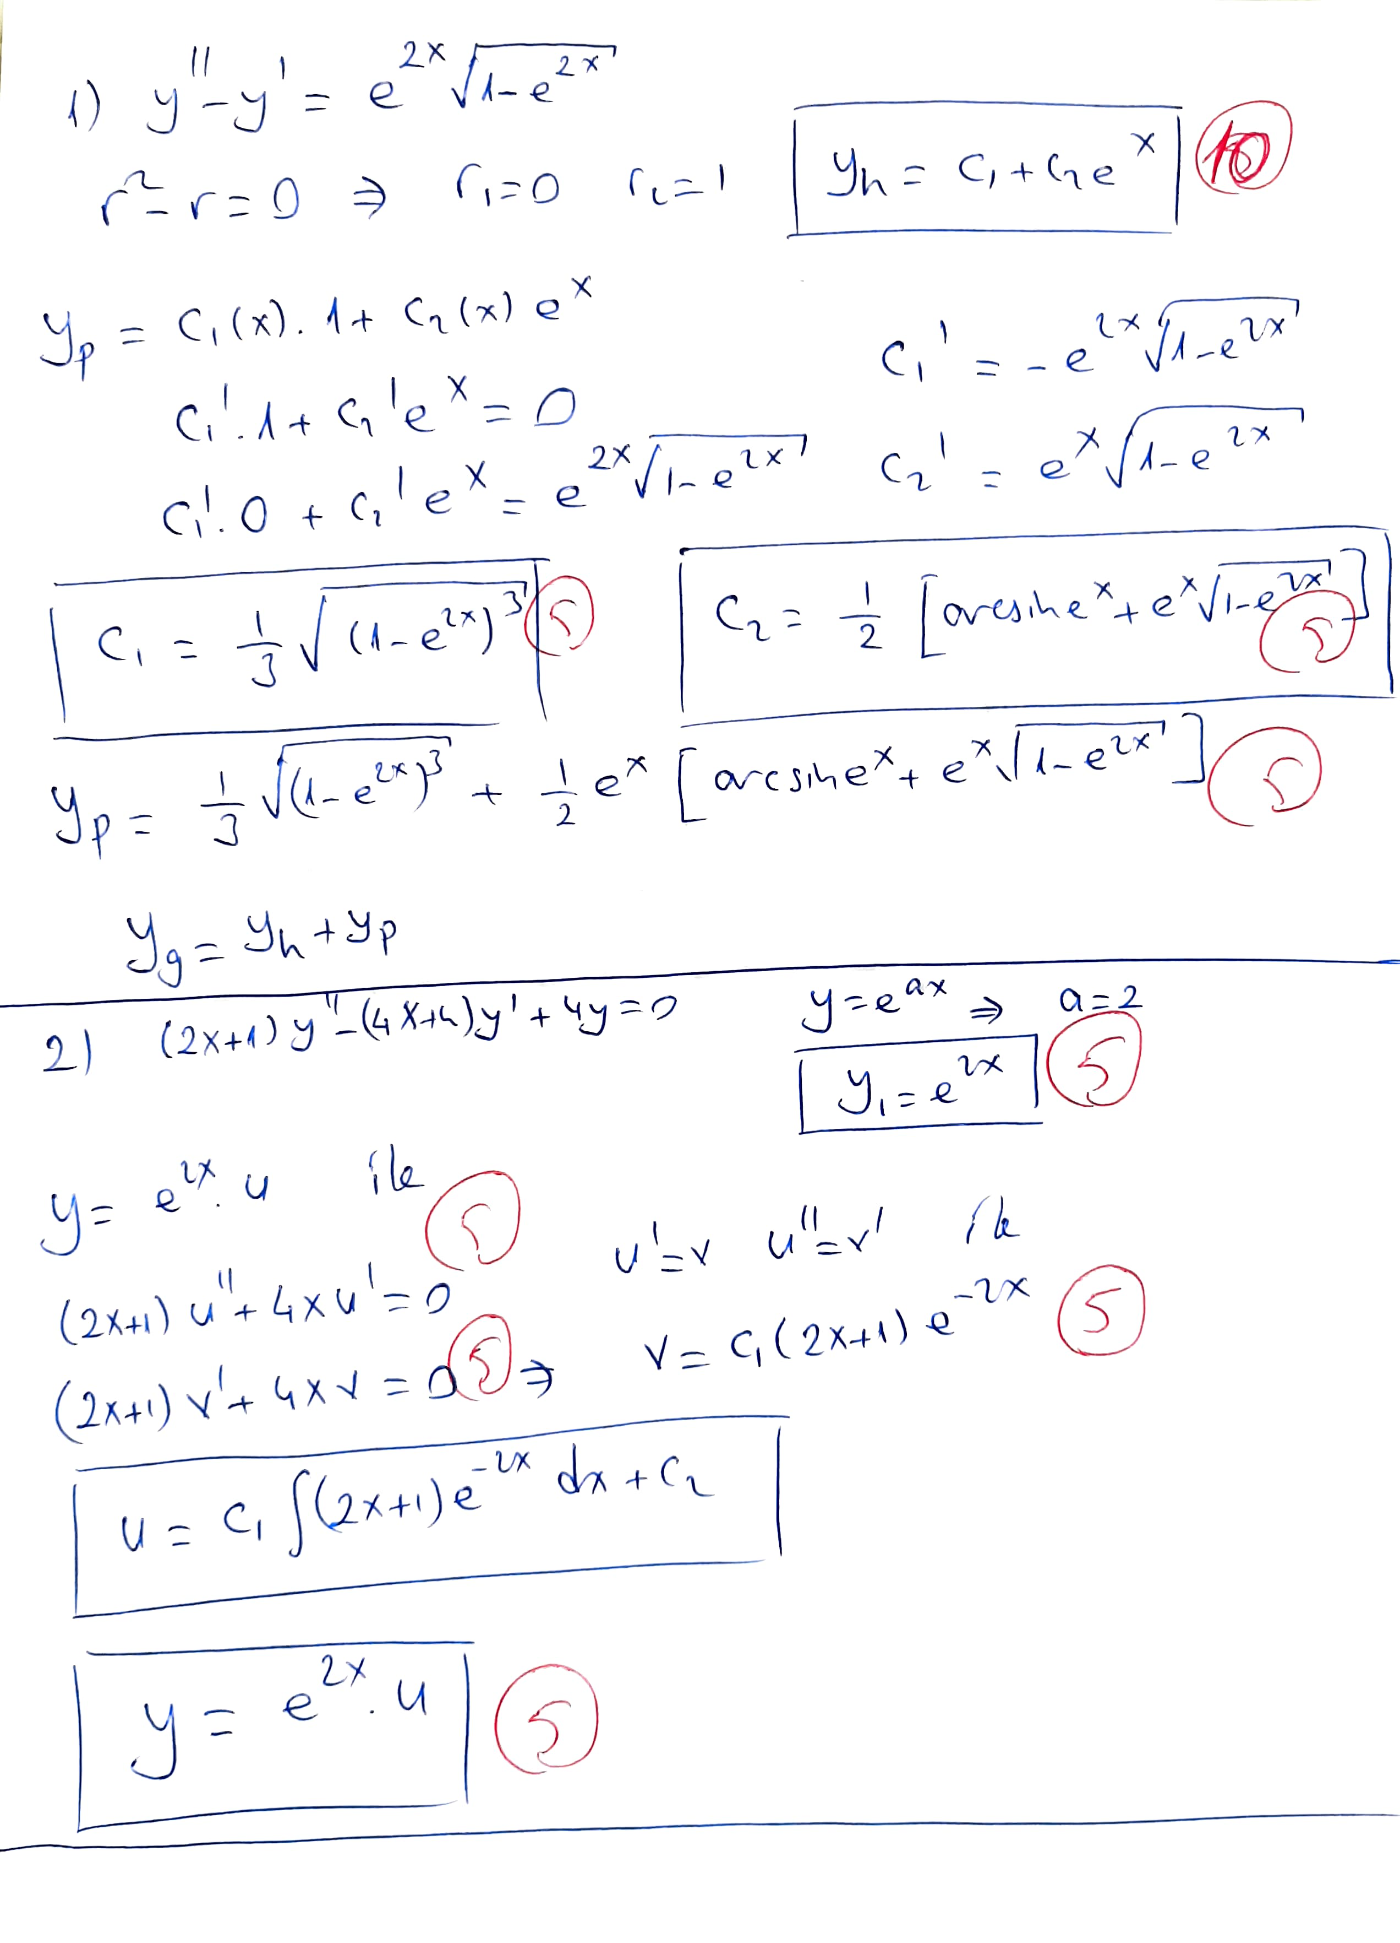 1) y'' - y' = e^{2x} √(1-e^{2x})
r² - r = 0 ⇒ r₁=0 r₂=1 y_h = C₁ + C₂e^x 10
y_p = C₁(x).1 + C₂(x) e^x
C₁' = -e^{2x} √(1-e^{2x})
C₁'.1 + C₂'e^x = 0
C₁'.0 + C₂'e^x = e^{2x} √(1-e^{2x}) C₂' = e^x √(1-e^{2x})
C₁ = 1/3 √((1-e^{2x})³) 5 C₂ = 1/2 [arcsin e^x + e^x √(1-e^{2x})] 5
y_p = 1/3 √((1-e^{2x})³) + 1/2 e^x [arcsin e^x + e^x √(1-e^{2x})] 5
y_g = y_h + y_p
2) (2x+1) y'' - (4x+4) y' + 4y = 0 y = e^{ax} ⇒ a=2
y₁ = e^{2x} 5
y = e^{2x}.u ile 5
u'=v u''=v' ile
(2x+1) u'' + 4xu' = 0
v = C₁(2x+1) e^{-2x} 5
(2x+1) v' + 4xv = 0 5 ⇒
u = C₁ ∫(2x+1)e^{-2x} dx + C₂
y = e^{2x}.u 5